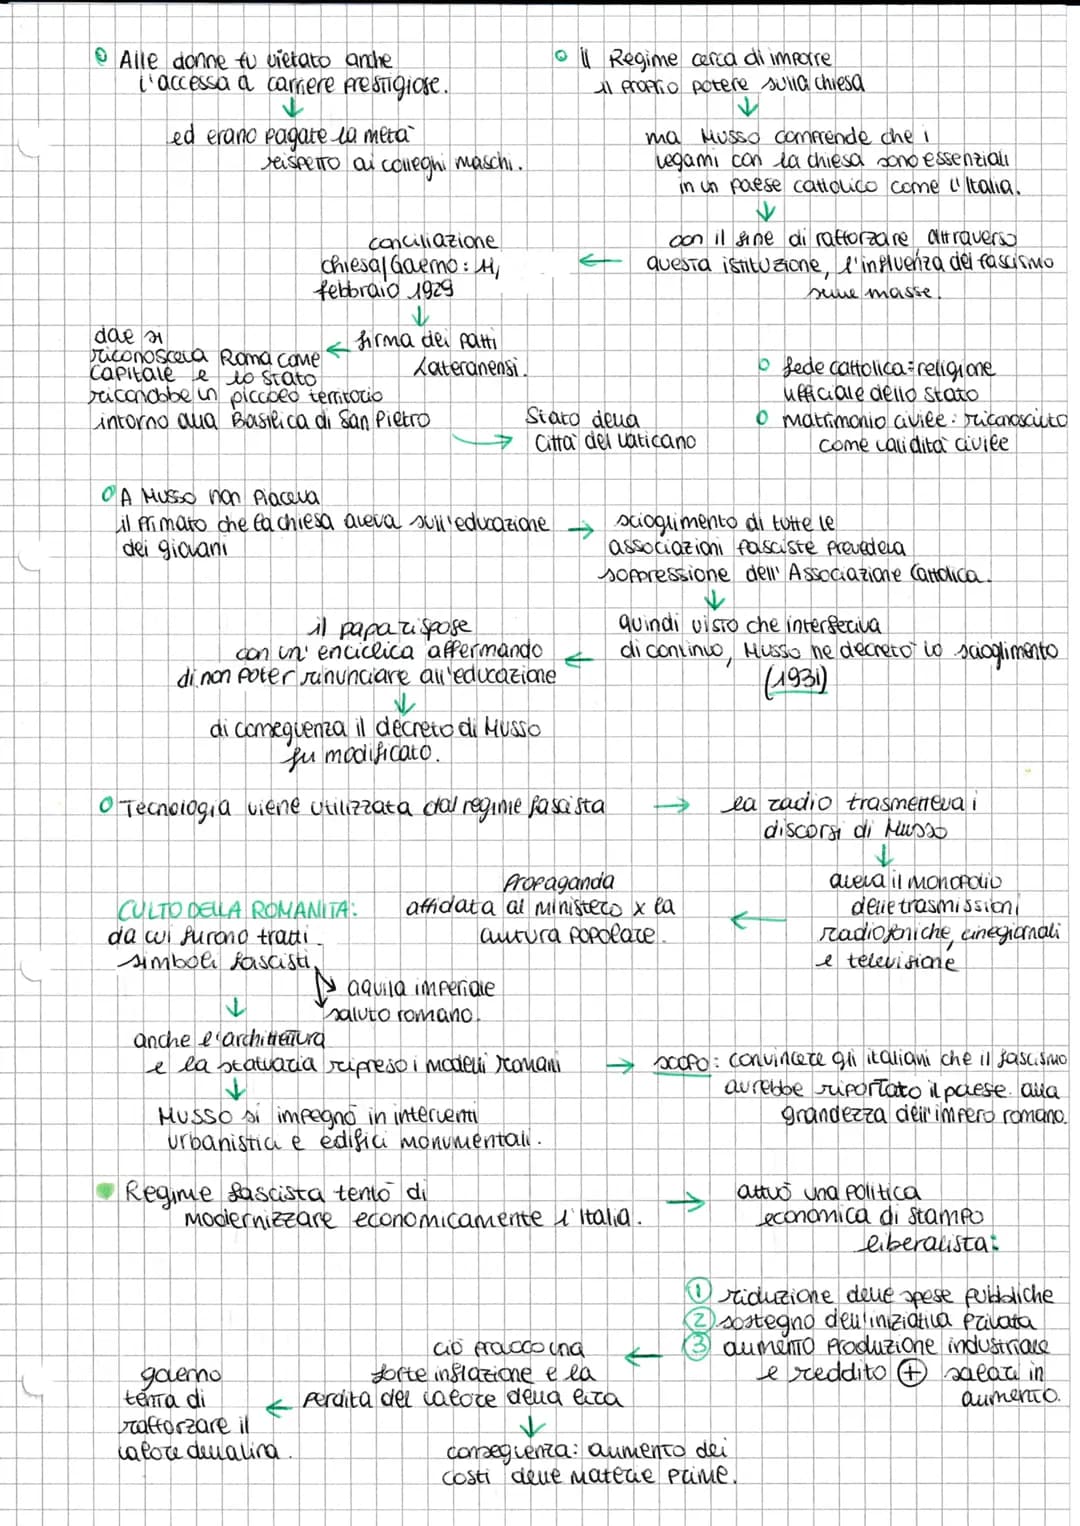 Alle donne fu vietato anche
l'accessa a carriere prestigiose.
ed erano pagate la metà
rispetto ai colleghi maschi.
il Regime cerca di imporre
il proprio potere sulla chiesa
ma Musso comprende che i
legami con la chiesa sono essenziali
in un paese cattolico come l'Italia.
con il fine di rafforzare attraverso
questa istituzione, l'influenza del fascismo
sulle masse.
conciliazione
chiesa/Governo: 11,
febbraio 1929
firma dei patti
Lateranensi.
dove si
riconosceva Roma come
capitale e lo stato
riconobbe un piccolo territorio
intorno alla Basilica di San Pietro
Stato della
Città del Vaticano
fede cattolica: religione
ufficiale dello stato
matrimonio civile: riconosciuto
come validità civile
A Musso non piaceva
il primato che la chiesa aveva sull'educazione
dei giovani
scioglimento di tutte le
associazioni fasciste prevedeva
soppressione dell' Associazione Cattolica.
quindi visto che interferiva
di continuo, Musso ne decretò lo scioglimento
(1931)
il papa rispose
con un' enciclica affermando
di non poter rinunciare all'educazione
di conseguenza il decreto di Musso
fu modificato.
Tecnologia viene utilizzata dal regime fascista
la radio trasmetteva i
discorsi di Musso
aveva il monopolio
delle trasmissioni
radiofoniche, cinegiornali
e televisione
Propaganda
affidata al ministero x la
cultura popolare.
CULTO DELLA ROMANITÀ:
da cui furono tratti
simboli fascisti
aquila imperiale
saluto romano.
anche l'architettura
e la statuaria ripreso i modelli romani
scopo: convincere gli italiani che il fascismo
avrebbe riportato il paese alla
grandezza dell'impero romano.
Musso si impegnò in interventi
urbanistici e edifici monumentali.
Regime fascista tentò di
modernizzare economicamente l'Italia.
attuò una politica
economica di stampo
liberalista:
1 riduzione delle spese pubbliche
2 sostegno dell'iniziativa privata
3 aumento produzione industriale
e reddito + salari in
aumento.
ciò provocò una
forte inflazione e la
perdita del valore della lira
governo
tenta di
rafforzare il
valore della lira.
conseguenza: aumento dei
costi delle materie prime.